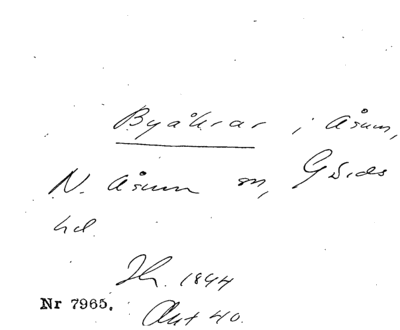 Byåkrar i Åsum,
N. Åsum sn, Gärds
hd.
Jh. 1844
Nr 7965. Akt 40.